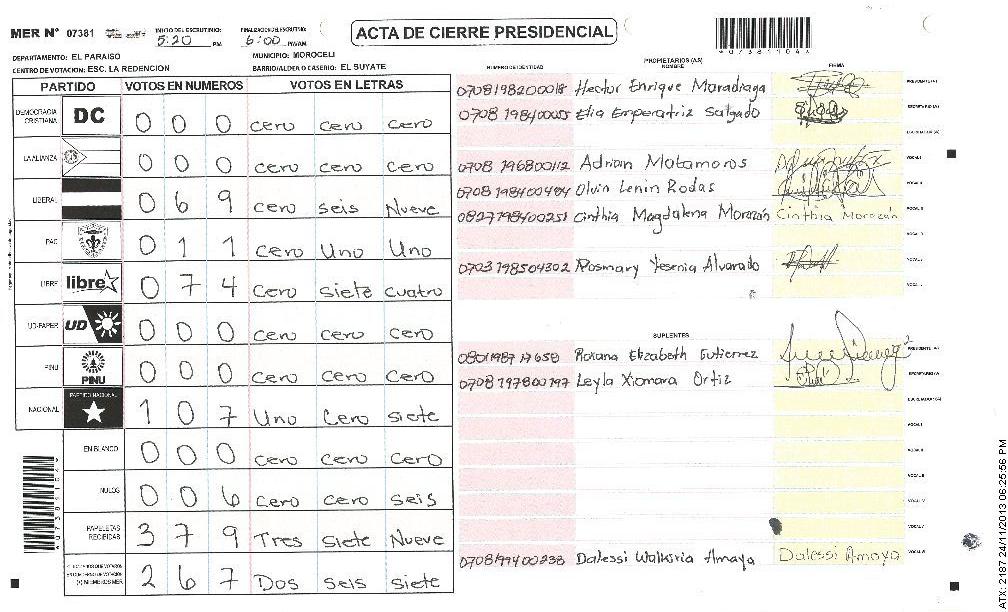 MER Nº 07381
INICIO DEL ESCRUTINIO: 5:20 PM
FINALIZACION DEL ESCRUTINIO: 6:00 PM/AM
ACTA DE CIERRE PRESIDENCIAL
DEPARTAMENTO: EL PARAISO
MUNICIPIO: MOROCELI
CENTRO DE VOTACION: ESC. LA REDENCION
BARRIO/ALDEA O CASERIO: EL SUYATE
PARTIDO VOTOS EN NUMEROS VOTOS EN LETRAS
DEMOCRACIA CRISTIANA DC 0 0 0 cero cero cero
LA ALIANZA 0 0 0 cero cero cero
LIBERAL 0 6 9 cero seis Nueve
PAC 0 1 1 cero Uno Uno
LIBRE libre 0 7 4 cero siete cuatro
UD-FAPER UD 0 0 0 cero cero cero
PINU PINU 0 0 0 cero cero cero
NACIONAL PARTIDO NACIONAL 1 0 7 Uno cero siete
EN BLANCO 0 0 0 cero cero cero
NULOS 0 0 6 cero cero seis
PAPELETAS RECIBIDAS 3 7 9 Tres siete Nueve
2 6 7 Dos seis siete
NUMERO DE IDENTIDAD PROPIETARIOS (A,S) NOMBRE FIRMA
0708198200018 Hector Enrique Maradiaga PRESIDENTE (A)
0708 198400055 Elia Emperatriz Salgado SECRETARIO (A)
ESCRUTADOR (A)
0708 196800112 Adrian Matamoros VOCAL I
0708 198400484 Olvin Lenin Rodas VOCAL II
0827198400251 Cinthia Magdalena Morazán Cinthia Morazán VOCAL III
0703 198504302 Rosmary Yesenia Alvarado
SUPLENTES
0801 1987 17658 Roxana Elizabeth Gutierrez PRESIDENTE (A)
0708 197800797 Leyla Xiomara Ortiz SECRETARIO (A)
ESCRUTADOR (A)
VOCAL I
VOCAL II
VOCAL III
VOCAL IV
VOCAL V
0708199400238 Dalessi Walkiria Amaya Dalessi Amaya VOCAL VI
ATX: 2187 24/11/2013 06:25:56 PM